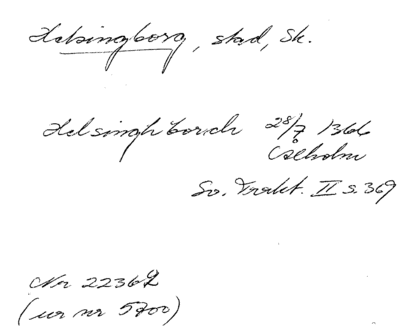 Helsingborg, stad, Sk.
Helsinghborich 28/7 1366
Ålholm
Sv. Trakt. II s. 369
Nr 22362
(ur nr 5700)